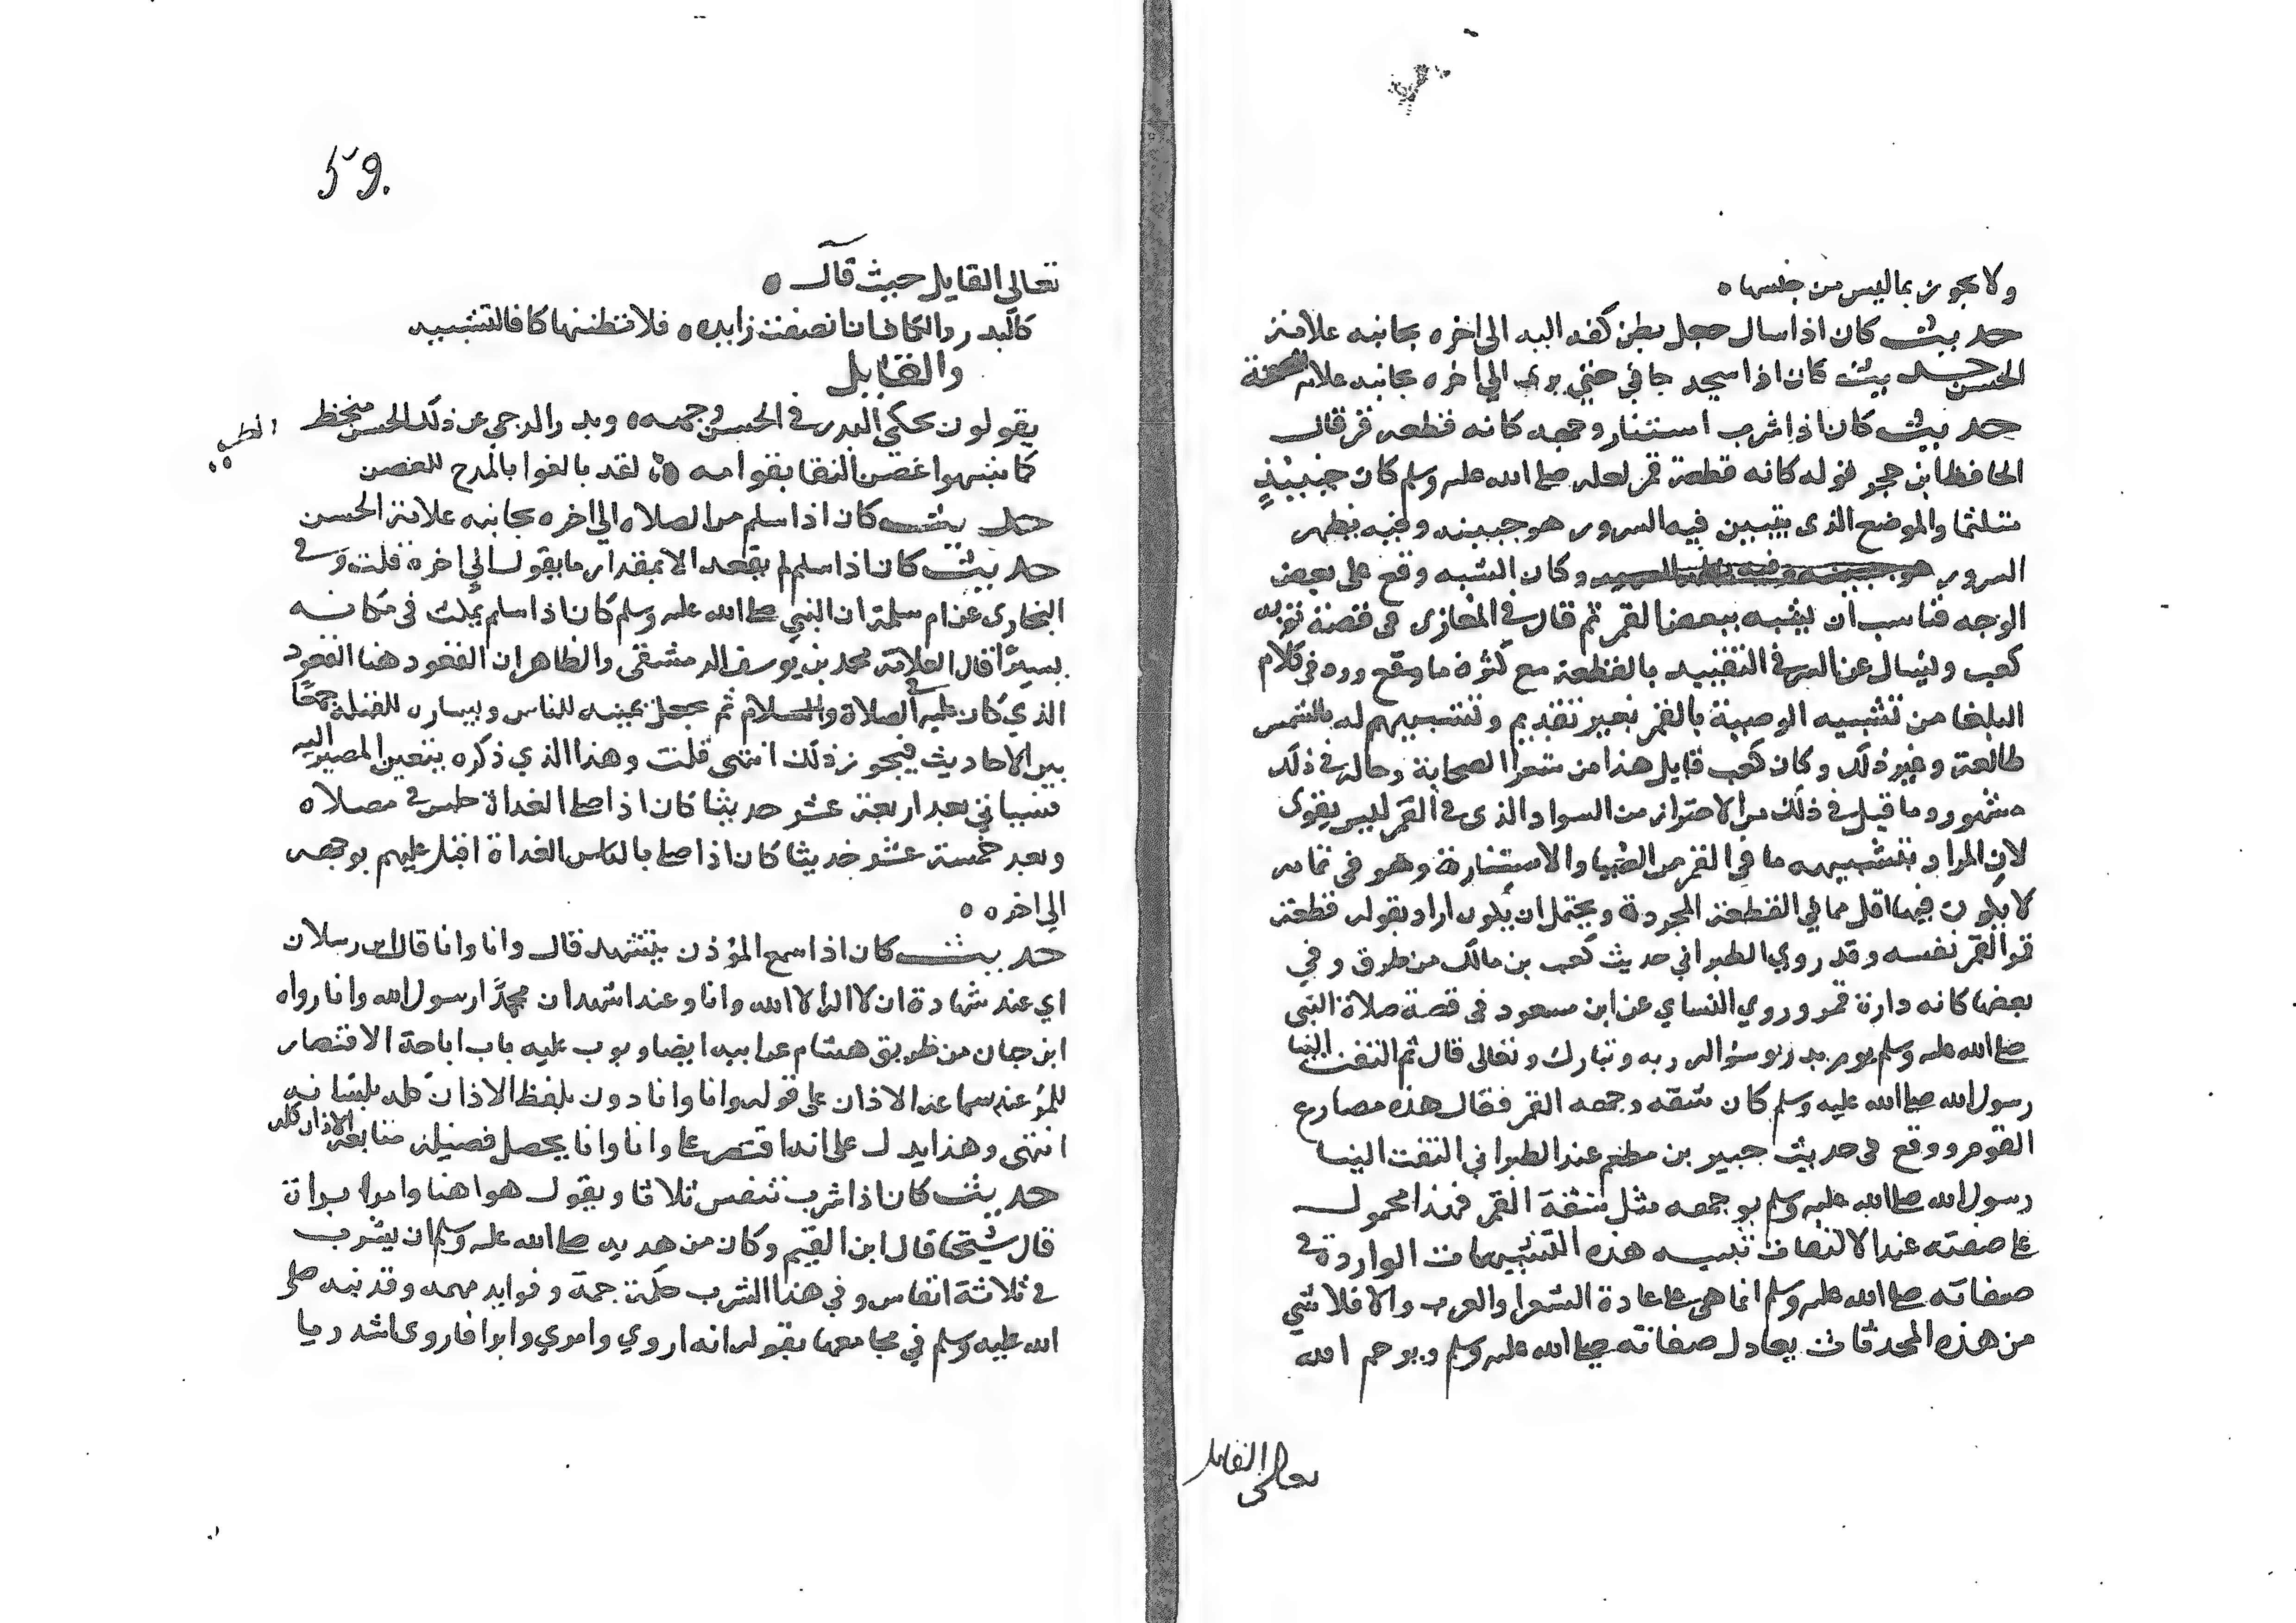 ولا يجوز بما ليس من جنسها ه
حديث كان اذا سال جعل بطن كفه اليه الى اخره بجانبه علامة
الحسن حديث كان اذا سجد جافى حتى يرى الي اخره بجانبه علامة الصحة
حديث كان اذا سر استنار وجهه كانه قطعة قمر قال
الحافظ ابن حجر قوله كانه قطعة قمر لعله صلى الله عليه وسلم كان حينيذ
متلثما والموضع الذى يتبين فيه السرور هو جبينه وفيه يظهر
السرور وكان الشبه وقع على بعض
الوجه فناسب ان يشبه ببعض القمر ثم قال في المغازى في قصة توبة
كعب وليسال عن السر في التقييد بالقطعة مع كثرة ما وقع وروده في كلام
البلغا من تشبيه الوجه بالقمر بغير تقييد وتشبيههم له بالشمس
طالعة وغير ذلك وكان كعب قايل هذا من شعرا الصحابة وحاله في ذلك
مشهور وما قيل في ذلك من الاحتراز من السواد الذى في القمر ليس بقوى
لان المراد بتشبيهه ما في القمر من الضيا والاستنارة وهو في تمامه
لا يكون فيها اقل مما في القطعة المجردة ويحتمل ان يكون اراد بقوله قطعة
قمر القمر نفسه وقد روي الطبراني حديث كعب بن مالك من طرق وفي
بعضها كانه دارة قمر وروي النساي عن ابن مسعود في قصة صلاة النبى
صلى الله عليه وسلم يوم بدر وسؤاله ربه تبارك وتعالى قال ثم التفت الينا
رسول الله صلى الله عليه وسلم كان شقه وجهه القمر فقال هذه مصارع
القوم ووقع في حديث جبير بن مطعم عند الطبراني التفت الينا
رسول الله صلى الله عليه وسلم بوجهه مثل شقة القمر فهذا محمول
على صفته عند الالتفات تنبيه هذه التشبيهات الواردة في
صفاته صلى الله عليه وسلم انما هى على عادة الشعرا والعرب والا فلا شي
من هذه المحدثات يعادل صفاته صلى الله عليه وسلم ويرحم الله
تعالى القايل
59.
تعالى القايل حيث قال ه
كالبدر والكاف ان انصفت زايده ه فلا تظننها كافا لتشبيه
والقايل
يقولون يحكي البدر في الحسن وجهه ه وبدر الدجي عن ذلك الحسن منحط
كما شبهوا غصن النقا بقوامه ه لقد بالغوا بالمدح للغصن
حديث كان اذا سلم من الصلاه الي اخره بجانبه علامة الحسن
حديث كان اذا سلم لم يقعد الا بمقدار ما يقول الي اخره قلت وفي
البخارى عن ام سلمة ان النبي صلى الله عليه وسلم كان اذا سلم يمكث في مكانه
يسيرا قال العلامة محمد بن يوسف الدمشقى والظاهر ان القعود هنا القعود
الذي كان عليه في الصلاة والسلام ثم يجعل يمينه للناس ويساره للقبلة جمعا
بين الاحاديث فيجوز ذلك انتهى قلت وهذا الذي ذكره يتعين المصير اليه
فسياتي بعد اربعة عشر حديثا كان اذا صلى الغداة جلس في مصلاه
وبعد خمسة عشر حديثا كان اذا صلى بالناس الغداة اقبل عليهم بوجهه
الى اخره ه
حديث كان اذا سمع المؤذن يتشهد قال وانا وانا قال ابن رسلان
اي عند شهادة ان لا اله الا الله وانا وعند اشهد ان محمدا رسول الله وانا رواه
ابن حبان من طريق هشام عن ابيه ايضا وبوب عليه باب اباحة الاقتصار
للمرء عند سماعه الاذان على قوله وانا وانا دون بلفظ الاذان كله بلسانه
انتهى وهذا يدل على انه اقتصر على وانا وانا يحصل فضيلة متابعة الاذان كله
حديث كان اذا شرب تنفس ثلاثا ويقول هو اهنا وامرا وابرا
قال شيخنا قال ابن القيم وكان من هديه صلى الله عليه وسلم ان يشرب
في ثلاثة انفاس وفي هذا الشرب حكمة جمة وفوايد مهمه وقد نبه صلى
الله عليه وسلم في مجامعها بقوله انه اروي وامري وابرا فاروى اشد ريا